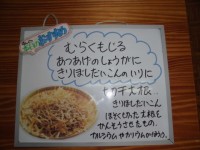 むらくもじる
あつあげのしょうがに
きりぼしだいこんのいりに
切り干大根
きりぼしだいこん
ほそくきった大根を
かんそうさせたもの。
カルシウムやカリウムがいっぱい。